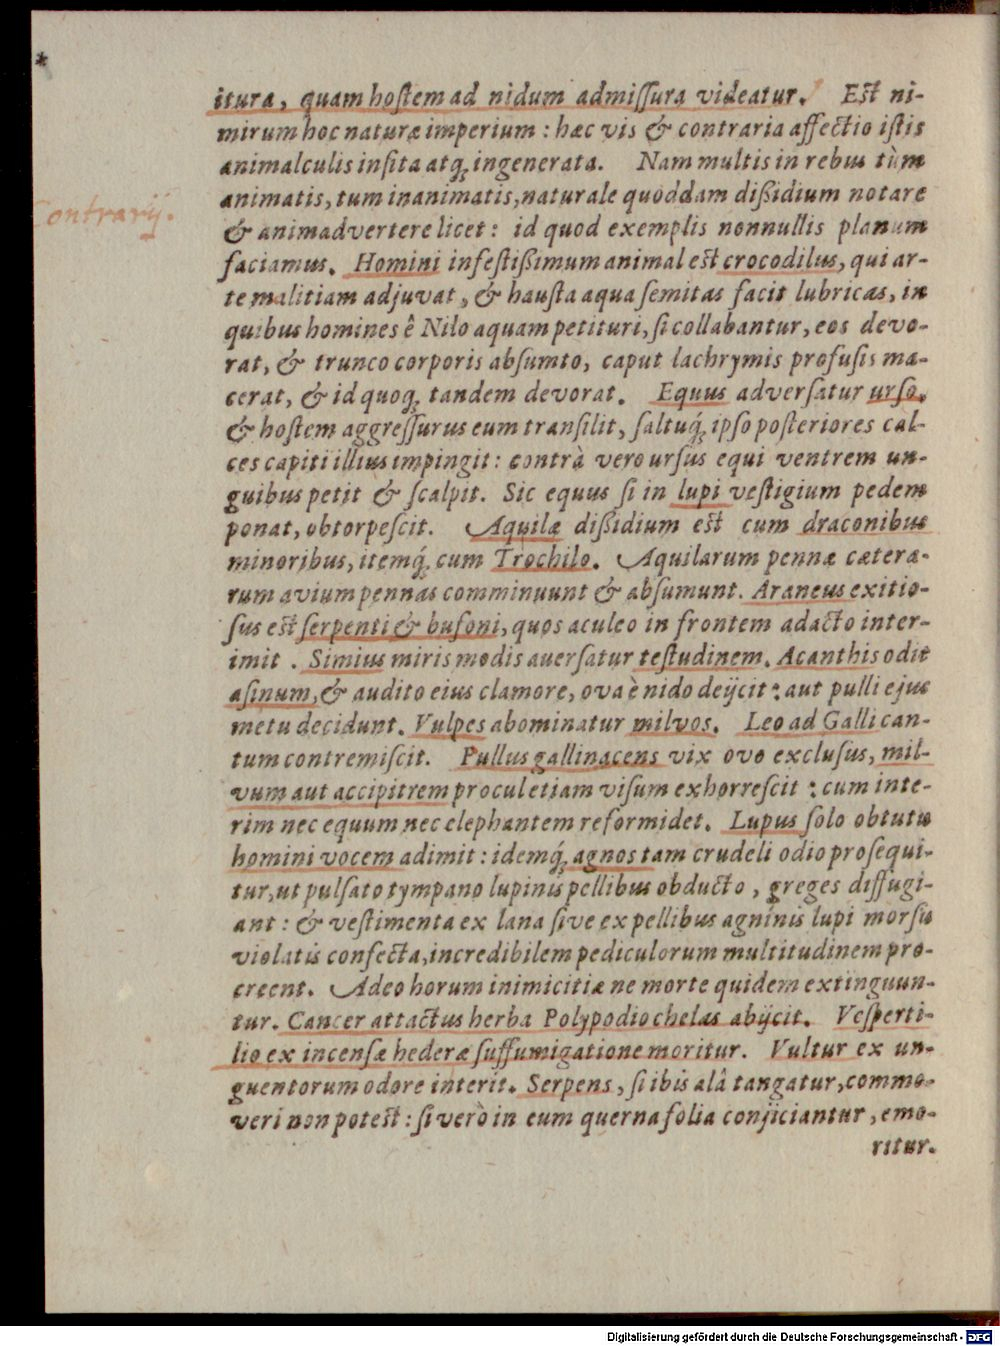 *
itura, quam hostem ad nidum admiſſura videatur. Eſt ni-
mirum hoc naturæ imperium : hæc vis & contraria affectio iſtis
animalculis inſita atq; ingenerata. Nam multis in rebus tùm
animatis, tum inanimatis, naturale quoddam diſsidium notare
Contrarij.
& animadvertere licet : id quod exemplis nonnullis planum
faciamus. Homini infeſtiſsimum animal eſt crocodilus, qui ar-
te malitiam adjuvat, & hauſta aqua ſemitas facit lubricas, in
quibus homines ê Nilo aquam petituri, ſi collabantur, eos devo-
rat, & trunco corporis abſumto, caput lachrymis profuſis ma-
cerat, & id quoq; tandem devorat. Equus adverſatur urſo,
& hoſtem aggreſſurus eum tranſilit, ſaltuq́; ipſo poſteriores cal-
ces capiti illius impingit : contrà vero urſus equi ventrem un-
guibus petit & ſcalpit. Sic equus ſi in lupi veſtigium pedem
ponat, obtorpeſcit. Aquilæ diſsidium eſt cum draconibus
minoribus, itemq́; cum Trochilo. Aquilarum pennæ cætera-
rum avium pennas comminuunt & abſumunt. Araneus exitio-
ſus eſt ſerpenti & bufoni, quos aculeo in frontem adacto inter-
imit. Simius miris modis averſatur teſtudinem. Acanthis odit
aſinum, & audito eius clamore, ova è nido deijcit : aut pulli ejus
metu decidunt. Vulpes abominatur milvos. Leo ad Galli can-
tum contremiſcit. Pullus gallinacens vix ovo excluſus, mil-
vum aut accipitrem procul etiam viſum exhorreſcit : cum inte-
rim nec equum nec elephantem reformidet. Lupus ſolo obtutu
homini vocem adimit : idemq́; agnos tam crudeli odio proſequi-
tur, ut pulſato tympano lupinis pellibus obducto, greges diffugi-
ant : & veſtimenta ex lana ſive ex pellibus agninis lupi morſu
violatis confecta, incredibilem pediculorum multitudinem pro-
creent. Adeo horum inimicitiæ ne morte quidem extinguun-
tur. Cancer attactus herba Polypodio chelas abijcit. Veſperti-
lio ex incenſæ hederæ ſuffumigatione moritur. Vultur ex un-
guentorum odore interit. Serpens, ſi ibis alâ tangatur, commo-
veri non poteſt : ſi verò in eum querna folia conjiciantur, emo-
ritur.
Digitalisierung gefördert durch die Deutsche Forschungsgemeinschaft - DFG